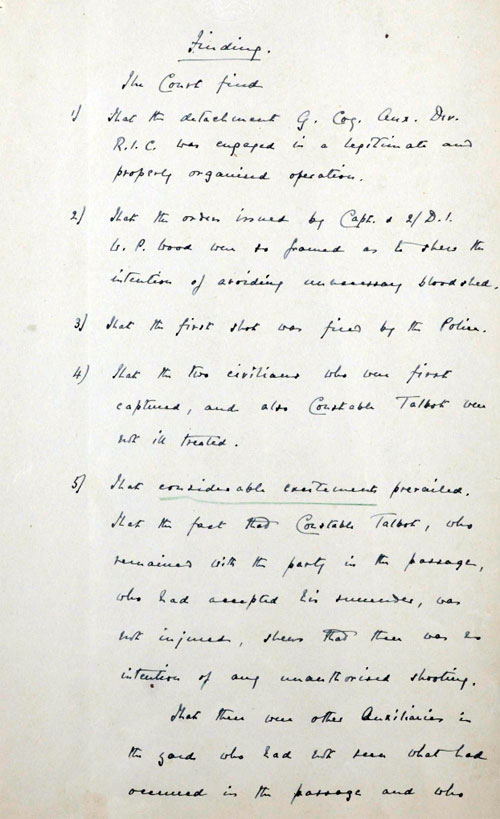 Finding.
The Court find
1) That the detachment G. Coy. Aux. Div.
R.I.C. was engaged in a legitimate and
properly organised operation.
2) That the orders issued by Capt. & 2/D.I.
W. P. Wood were so framed as to shew the
intention of avoiding unnecessary bloodshed.
3) That the first shot was fired by the Police.
4) That the two civilians who were first
captured, and also Constable Talbot were
not ill treated.
5) That considerable excitement prevailed.
That the fact that Constable Talbot, who
remained with the party in the passage,
who had accepted his surrender, was
not injured, shews that there was no
intention of any unauthorised shooting.
That there were other Auxiliaries in
the yard who had not seen what had
occurred in the passage and who